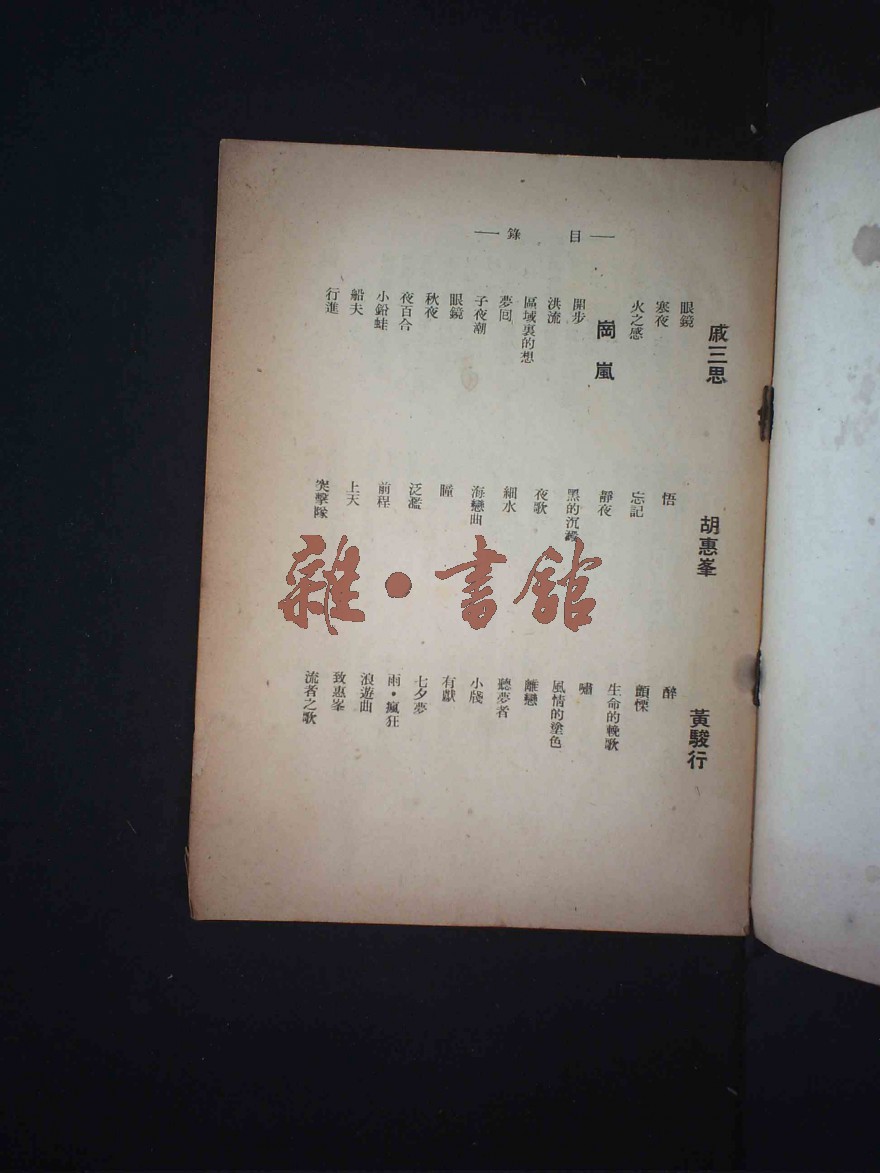 — 目 錄 —
戚三思
眼鏡
寒夜
火之感
崗嵐
開步
洪流
區域裏的想
夢囘
子夜潮
眼鏡
秋夜
夜百合
小鉛蛙
船夫
行進
胡惠峯
悟
忘記
靜夜
黑的沉澱
夜歌
細水
海戀曲
瞳
泛濫
前程
上天
突擊隊
黃駿行
醉
顫慄
生命的輓歌
嘯
風情的塗色
離戀
聽夢者
小牋
有獻
七夕夢
雨•瘋狂
浪遊曲
致惠峯
流者之歌
雜•書館